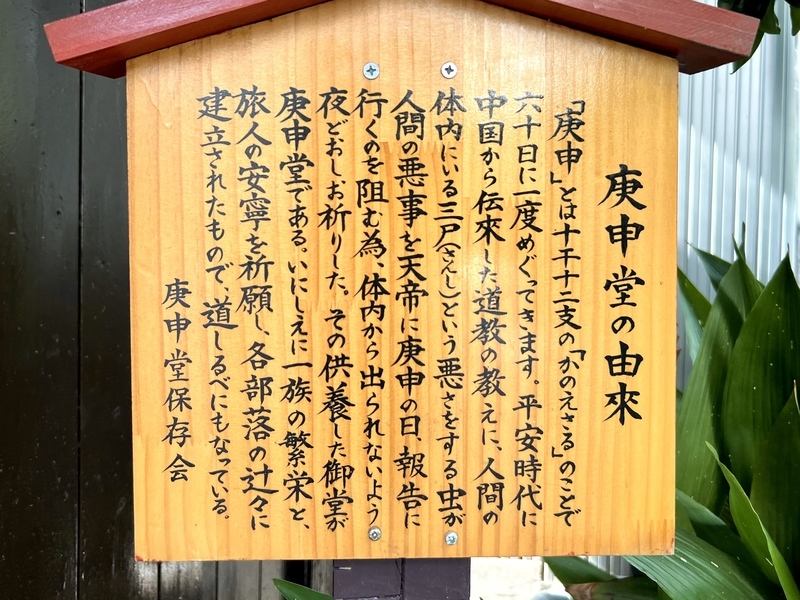 庚申堂の由來
「庚申」とは十干十二支の「かのえさる」のことで
六十日に一度めぐってきます。平安時代に
中国から伝来した道教の教えに、人間の
体内にいる三尸(さんし)という悪さをする虫が
人間の悪事を天帝に庚申の日、報告に
行くのを阻む為、体内から出られないよう
夜どおしお祈りした。その供養した御堂が
庚申堂である。いにしえに一族の繁栄と、
旅人の安寧を祈願し、各部落の辻々に
建立されたもので、道しるべにもなっている。
庚申堂保存会